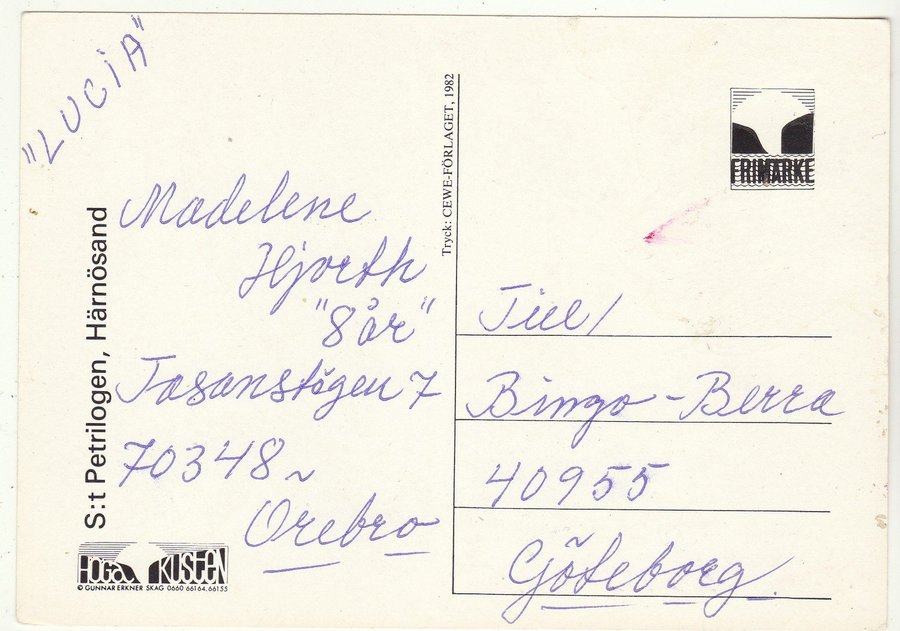 "LUCIA"
Madelene
Hjorth
"8 år"
Fasanstigen 7
70348
Örebro
S:t Petrilogen, Härnösand
HÖGA KUSTEN
© GUNNAR ERKNER SKAG 0660 66164. 66155
Tryck: CEWE-FÖRLAGET, 1982
FRIMÄRKE
Till/
Bingo-Berra
40955
Göteborg